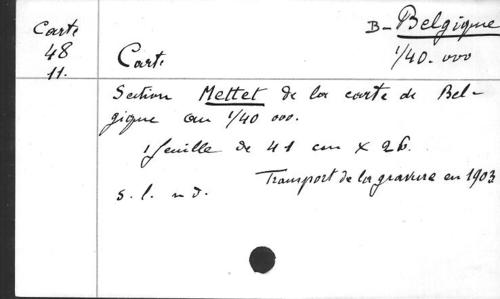 Carte
48
11.
B - Belgique
1/40.000
Carte
Section Mettet de la carte de Bel-
gique au 1/40 000.
1 feuille de 41 cm x 26.
Transport de la gravure en 1903
s. l. n d.